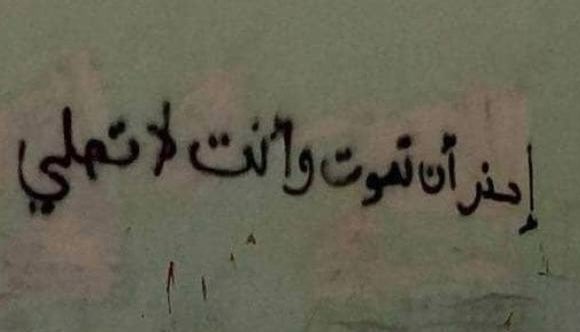 إحذر أن تموت وأنت لا تصلي